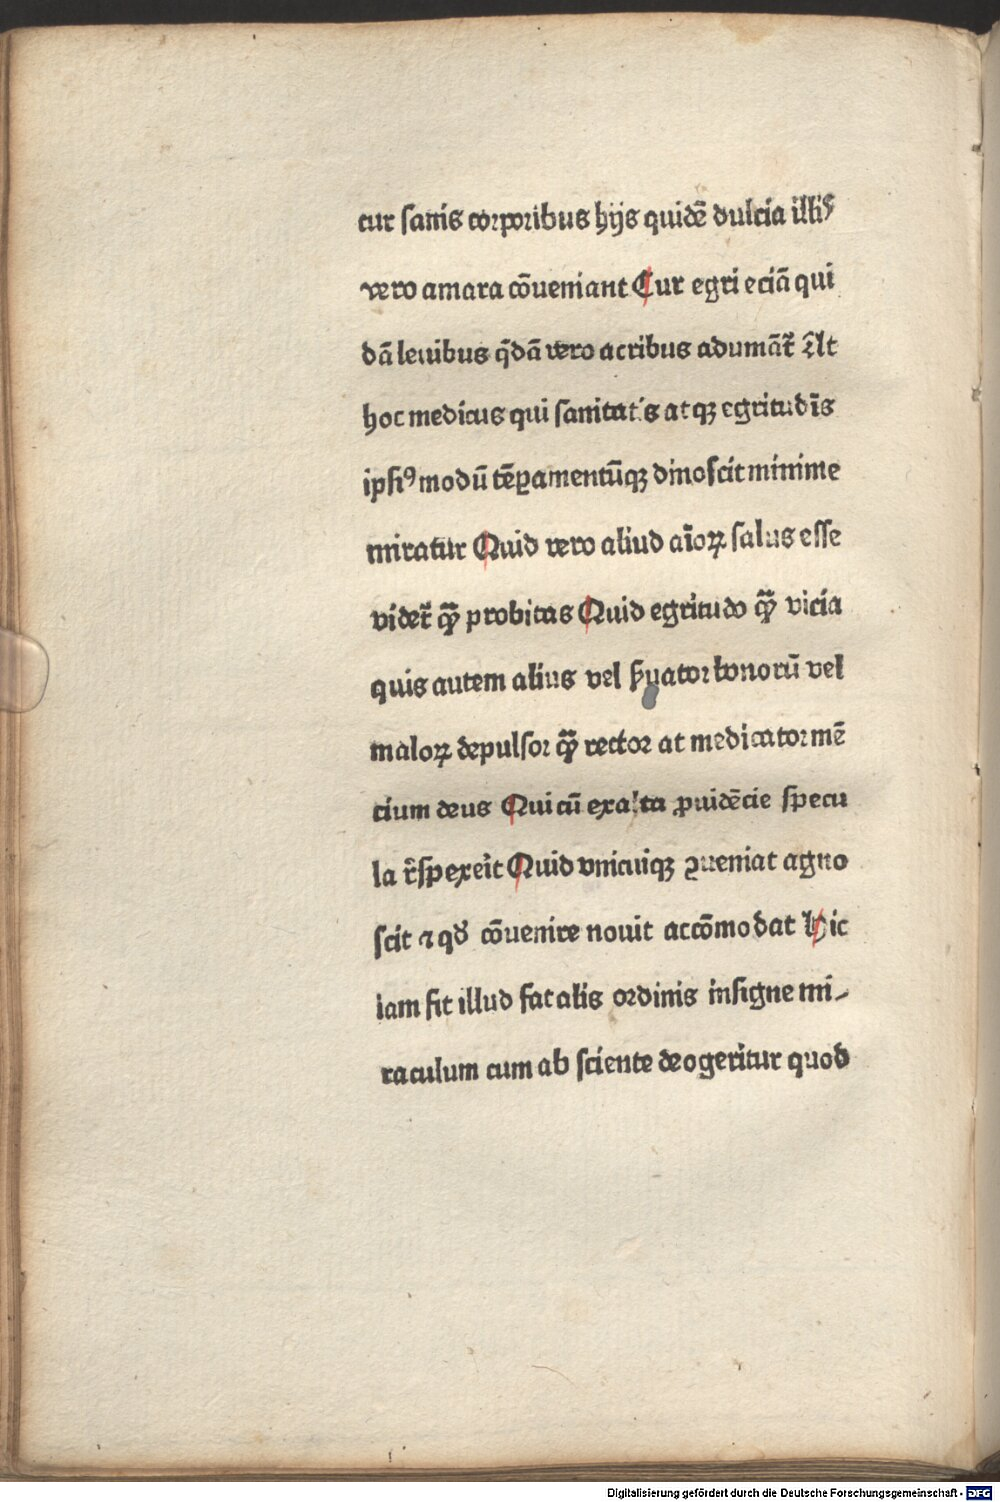 cur sanis corporibus hijs quidē dulcia illis
vero amara cōueniant Cur egri eciā qui
dā leuibus q̄dā vero acribus adiumāt᷑ At
hoc medicus qui sanitatis atqꝫ egritudīs
ipsiꝰ modū tēꝑamentūqꝫ dinoscit minime
miratur Quid vero aliud aīoꝝ salus esse
videt᷑ qꝫ̄ probitas Quid egritudo qꝫ̄ vicia
quis autem alius vel ẜuator bonorū vel
maloꝝ depulsor qꝫ̄ rector at medicator mē
cium deus Qui cū ex alta ꝓuidēcie specu
la r̄spexerit Quid vnicuiqꝫ ꝯueniat agno
scit ⁊ qd̛ cōuenire nouit accōmodat Hic
iam fit illud fatalis ordinis insigne mi-
raculum cum ab sciente deo geritur quod
Digitalisierung gefördert durch die Deutsche Forschungsgemeinschaft - DFG